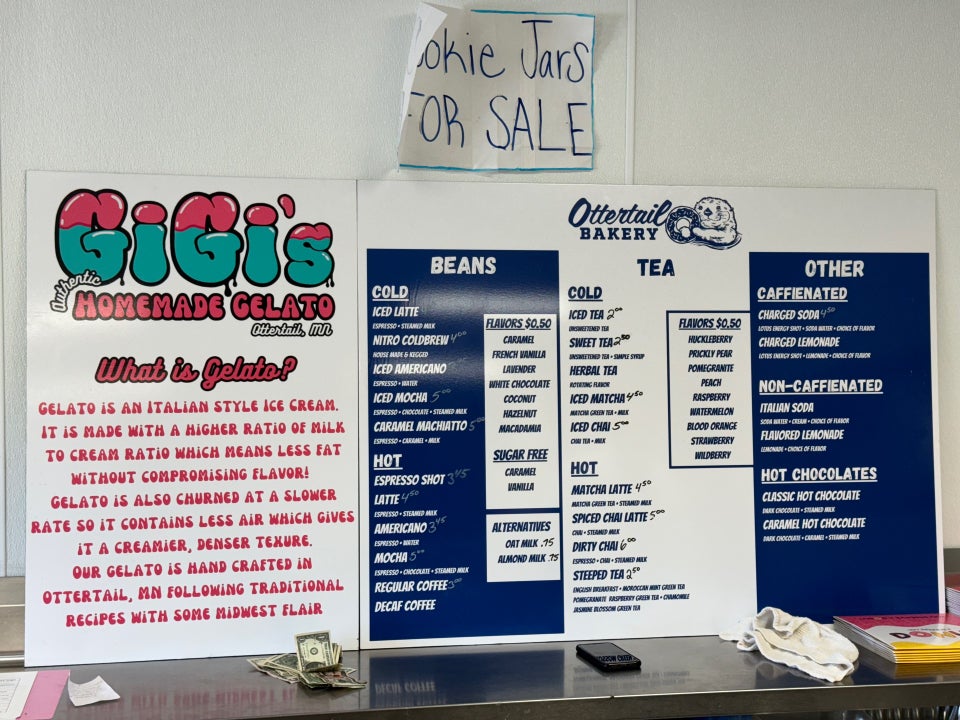 okie Jars
FOR SALE
GiGi's
Authentic
HOMEMADE GELATO
Ottertail, MN
What is Gelato?
GELATO IS AN ITALIAN STYLE ICE CREAM.
IT IS MADE WITH A HIGHER RATIO OF MILK
TO CREAM RATIO WHICH MEANS LESS FAT
WITHOUT COMPROMISING FLAVOR!
GELATO IS ALSO CHURNED AT A SLOWER
RATE SO IT CONTAINS LESS AIR WHICH GIVES
IT A CREAMIER, DENSER TEXURE.
OUR GELATO IS HAND CRAFTED IN
OTTERTAIL, MN FOLLOWING TRADITIONAL
RECIPES WITH SOME MIDWEST FLAIR
Ottertail
BAKERY
BEANS
COLD
ICED LATTE
ESPRESSO • STEAMED MILK
NITRO COLDBREW 4.00
HOUSE MADE & KEGGED
ICED AMERICANO
ESPRESSO • WATER
ICED MOCHA 5.00
ESPRESSO • CHOCOLATE • STEAMED MILK
CARAMEL MACHIATTO 5.00
ESPRESSO • CARAMEL • MILK
HOT
ESPRESSO SHOT 3.45
LATTE 4.50
ESPRESSO • STEAMED MILK
AMERICANO 3.45
ESPRESSO • WATER
MOCHA 5.00
ESPRESSO • CHOCOLATE • STEAMED MILK
REGULAR COFFEE 3.00
DECAF COFFEE
FLAVORS $0.50
CARAMEL
FRENCH VANILLA
LAVENDER
WHITE CHOCOLATE
COCONUT
HAZELNUT
MACADAMIA
SUGAR FREE
CARAMEL
VANILLA
ALTERNATIVES
OAT MILK .75
ALMOND MILK .75
TEA
COLD
ICED TEA 2.00
UNSWEETENED TEA
SWEET TEA 2.50
UNSWEETENED TEA • SIMPLE SYRUP
HERBAL TEA
ROTATING FLAVOR
ICED MATCHA 4.50
MATCHA GREEN TEA • MILK
ICED CHAI 5.00
CHAI TEA • MILK
HOT
MATCHA LATTE 4.50
MATCHA GREEN TEA • STEAMED MILK
SPICED CHAI LATTE 5.00
CHAI • STEAMED MILK
DIRTY CHAI 6.00
ESPRESSO • CHAI • STEAMED MILK
STEEPED TEA 2.50
ENGLISH BREAKFAST • MOROCCAN MINT GREEN TEA
POMEGRANATE RASPBERRY GREEN TEA • CHAMOMILE
JASMINE BLOSSOM GREEN TEA
FLAVORS $0.50
HUCKLEBERRY
PRICKLY PEAR
POMEGRANITE
PEACH
RASPBERRY
WATERMELON
BLOOD ORANGE
STRAWBERRY
WILDBERRY
OTHER
CAFFIENATED
CHARGED SODA 4.50
LOTUS ENERGY SHOT • SODA WATER • CHOICE OF FLAVOR
CHARGED LEMONADE
LOTUS ENERGY SHOT • LEMONADE • CHOICE OF FLAVOR
NON-CAFFIENATED
ITALIAN SODA
SODA WATER • CREAM • CHOICE OF FLAVOR
FLAVORED LEMONADE
LEMONADE • CHOICE OF FLAVOR
HOT CHOCOLATES
CLASSIC HOT CHOCOLATE
DARK CHOCOLATE • STEAMED MILK
CARAMEL HOT CHOCOLATE
DARK CHOCOLATE • CARAMEL • STEAMED MILK